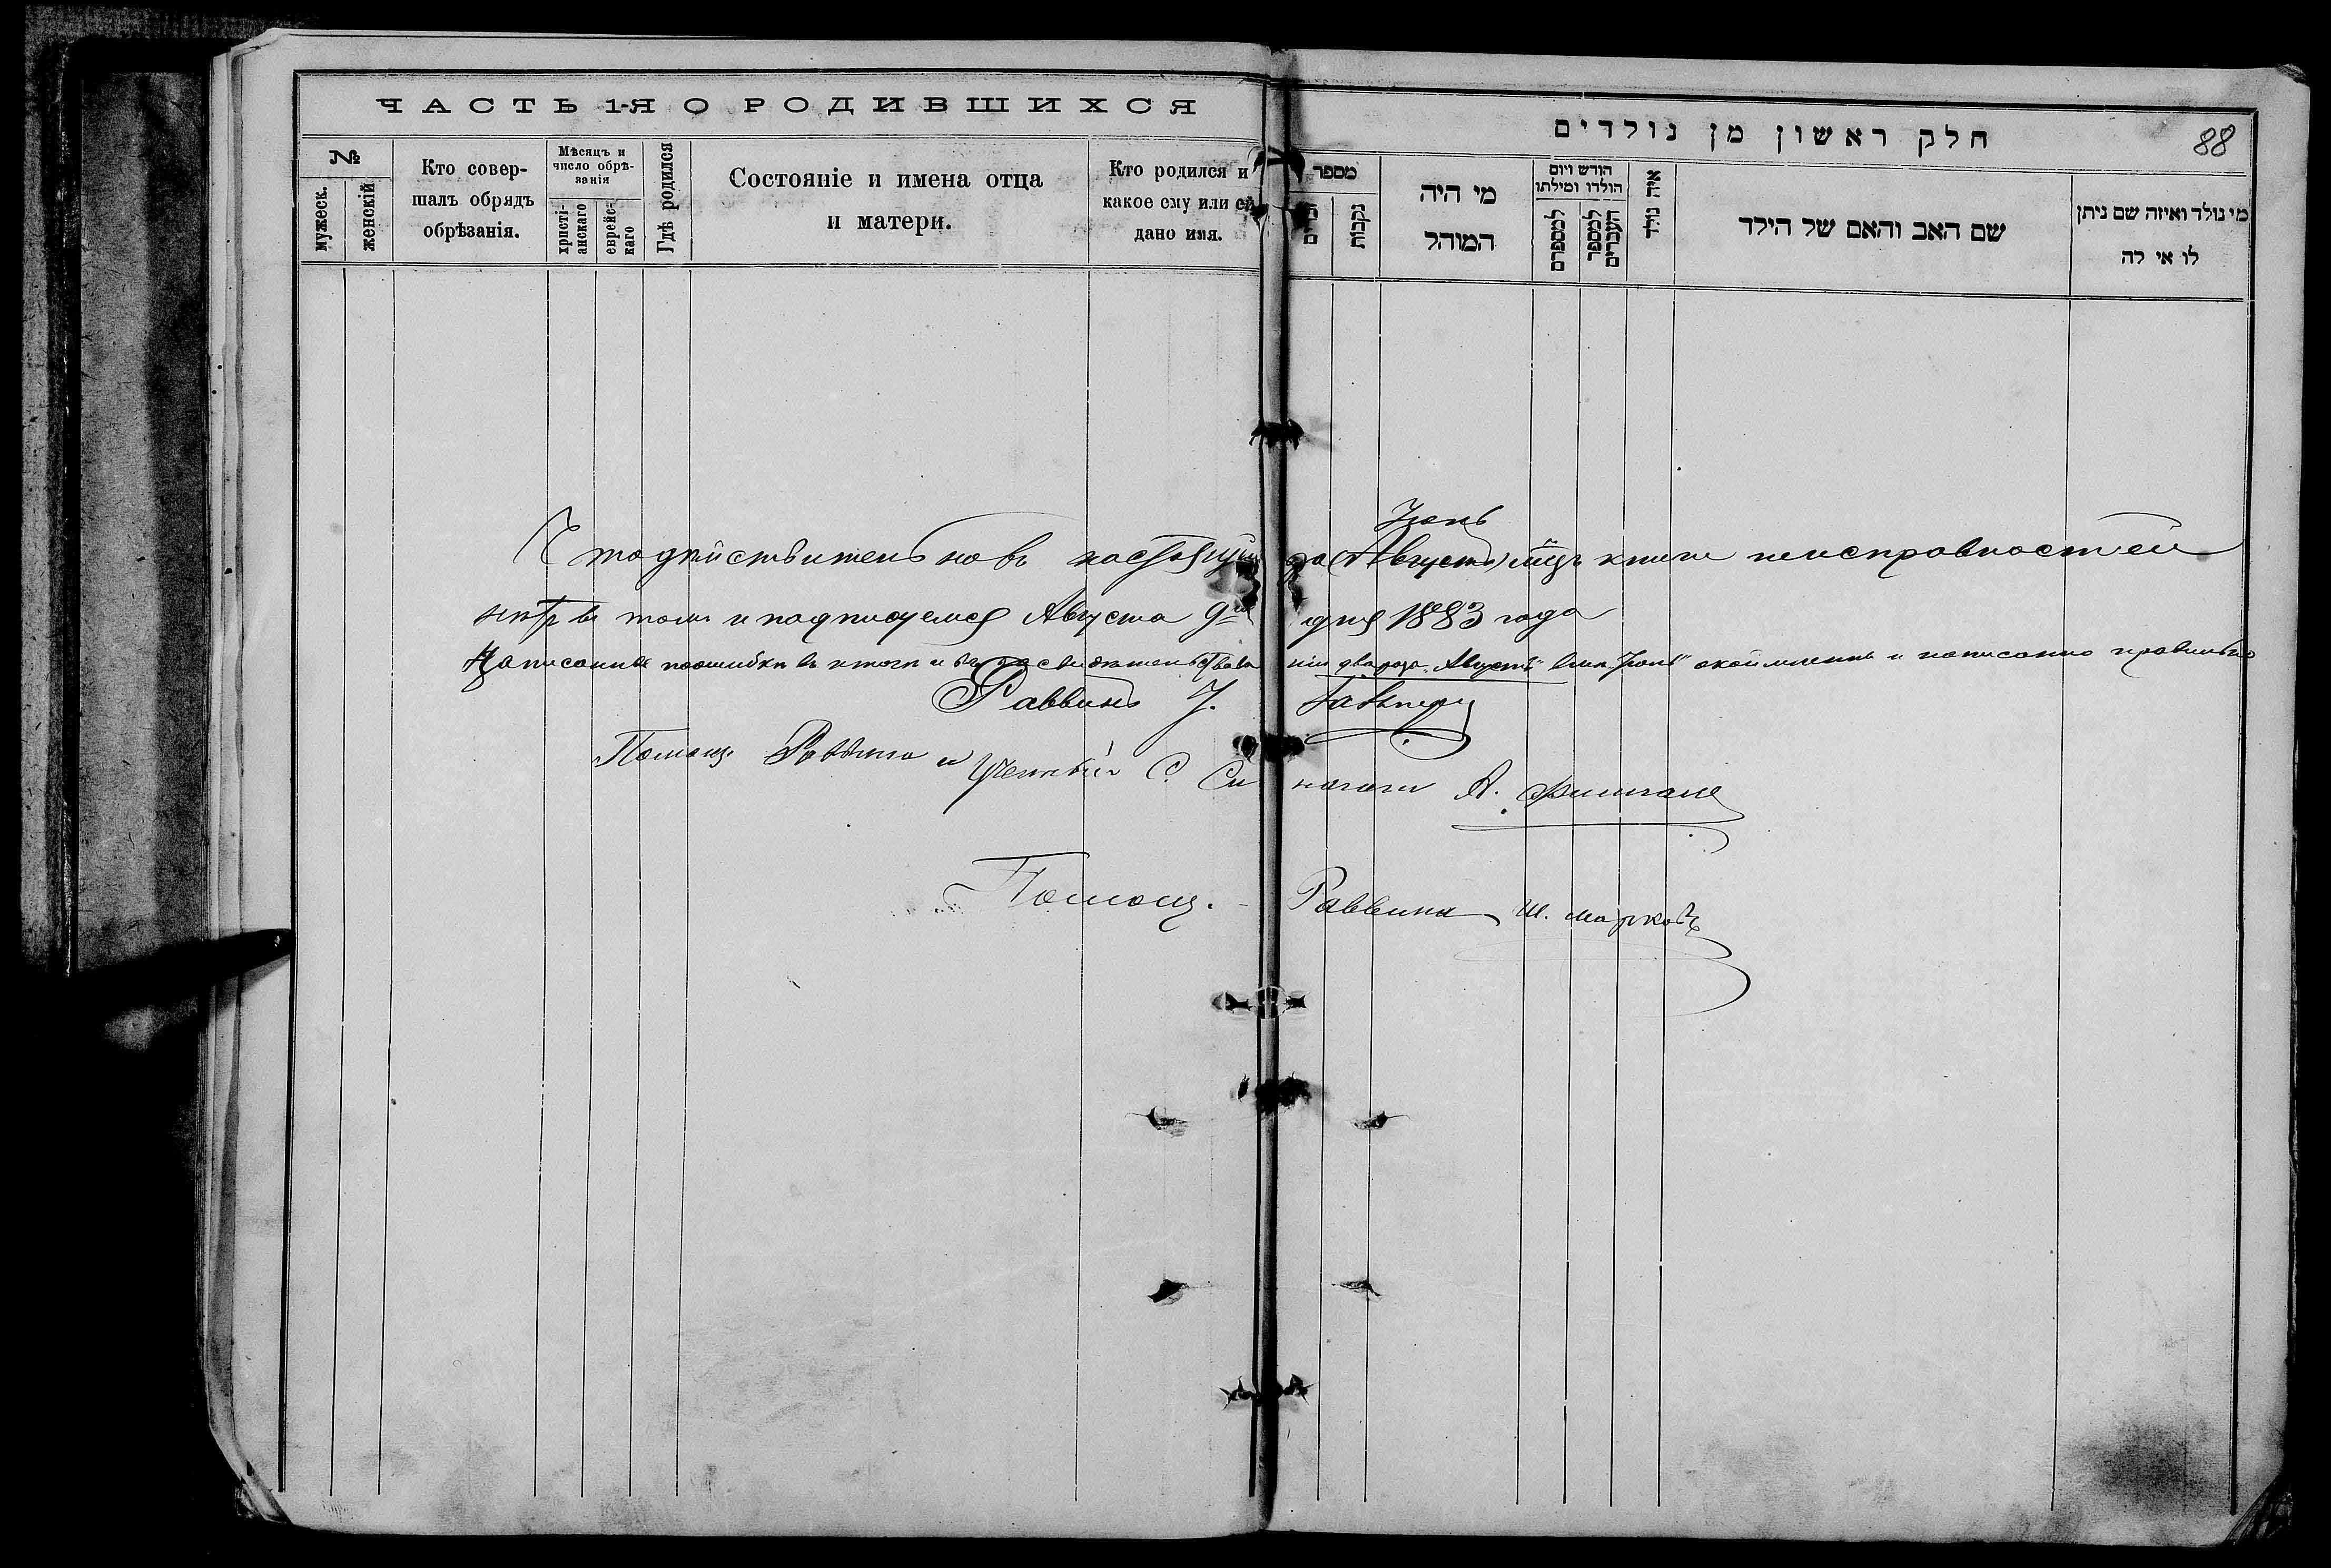 ЧАСТЬ 1-Я О РОДИВШИХСЯ
№
мужеск.
женскій
Кто совер-
шалъ обрядъ
обрѣзанія.
Мѣсяцъ и
число обрѣ-
занія
христі-
анскаго
еврейс-
каго
Гдѣ родился
Состояніе и имена отца
и матери.
Кто родился и
какое ему или ей
дано имя.
חלק ראשון מן נולדים
88
מספר
נקבות
מי היה
המוהל
חודש ויום
הולדו ומילתו
למספרם
למספר
העברים
איה נולד
שם האב והאם של הילד
מי נולד ואיזה שם ניתן
לו או לה
Іюнь
Что дѣйствительно въ настоящей за (Августъ) мцъ книге неисправностей
нѣтъ въ томъ и подписуемся Августа 9го дня 1883 года
Написанные по ошибки въ итоги и въ засвидѣтельствованіи два раза "Августъ" вмѣ "Іюнь" и написанно правильно
Раввинъ
Помощ. Раввина и Ученый С. Синагоги А.
Помощ. Раввина Ш. Марковъ